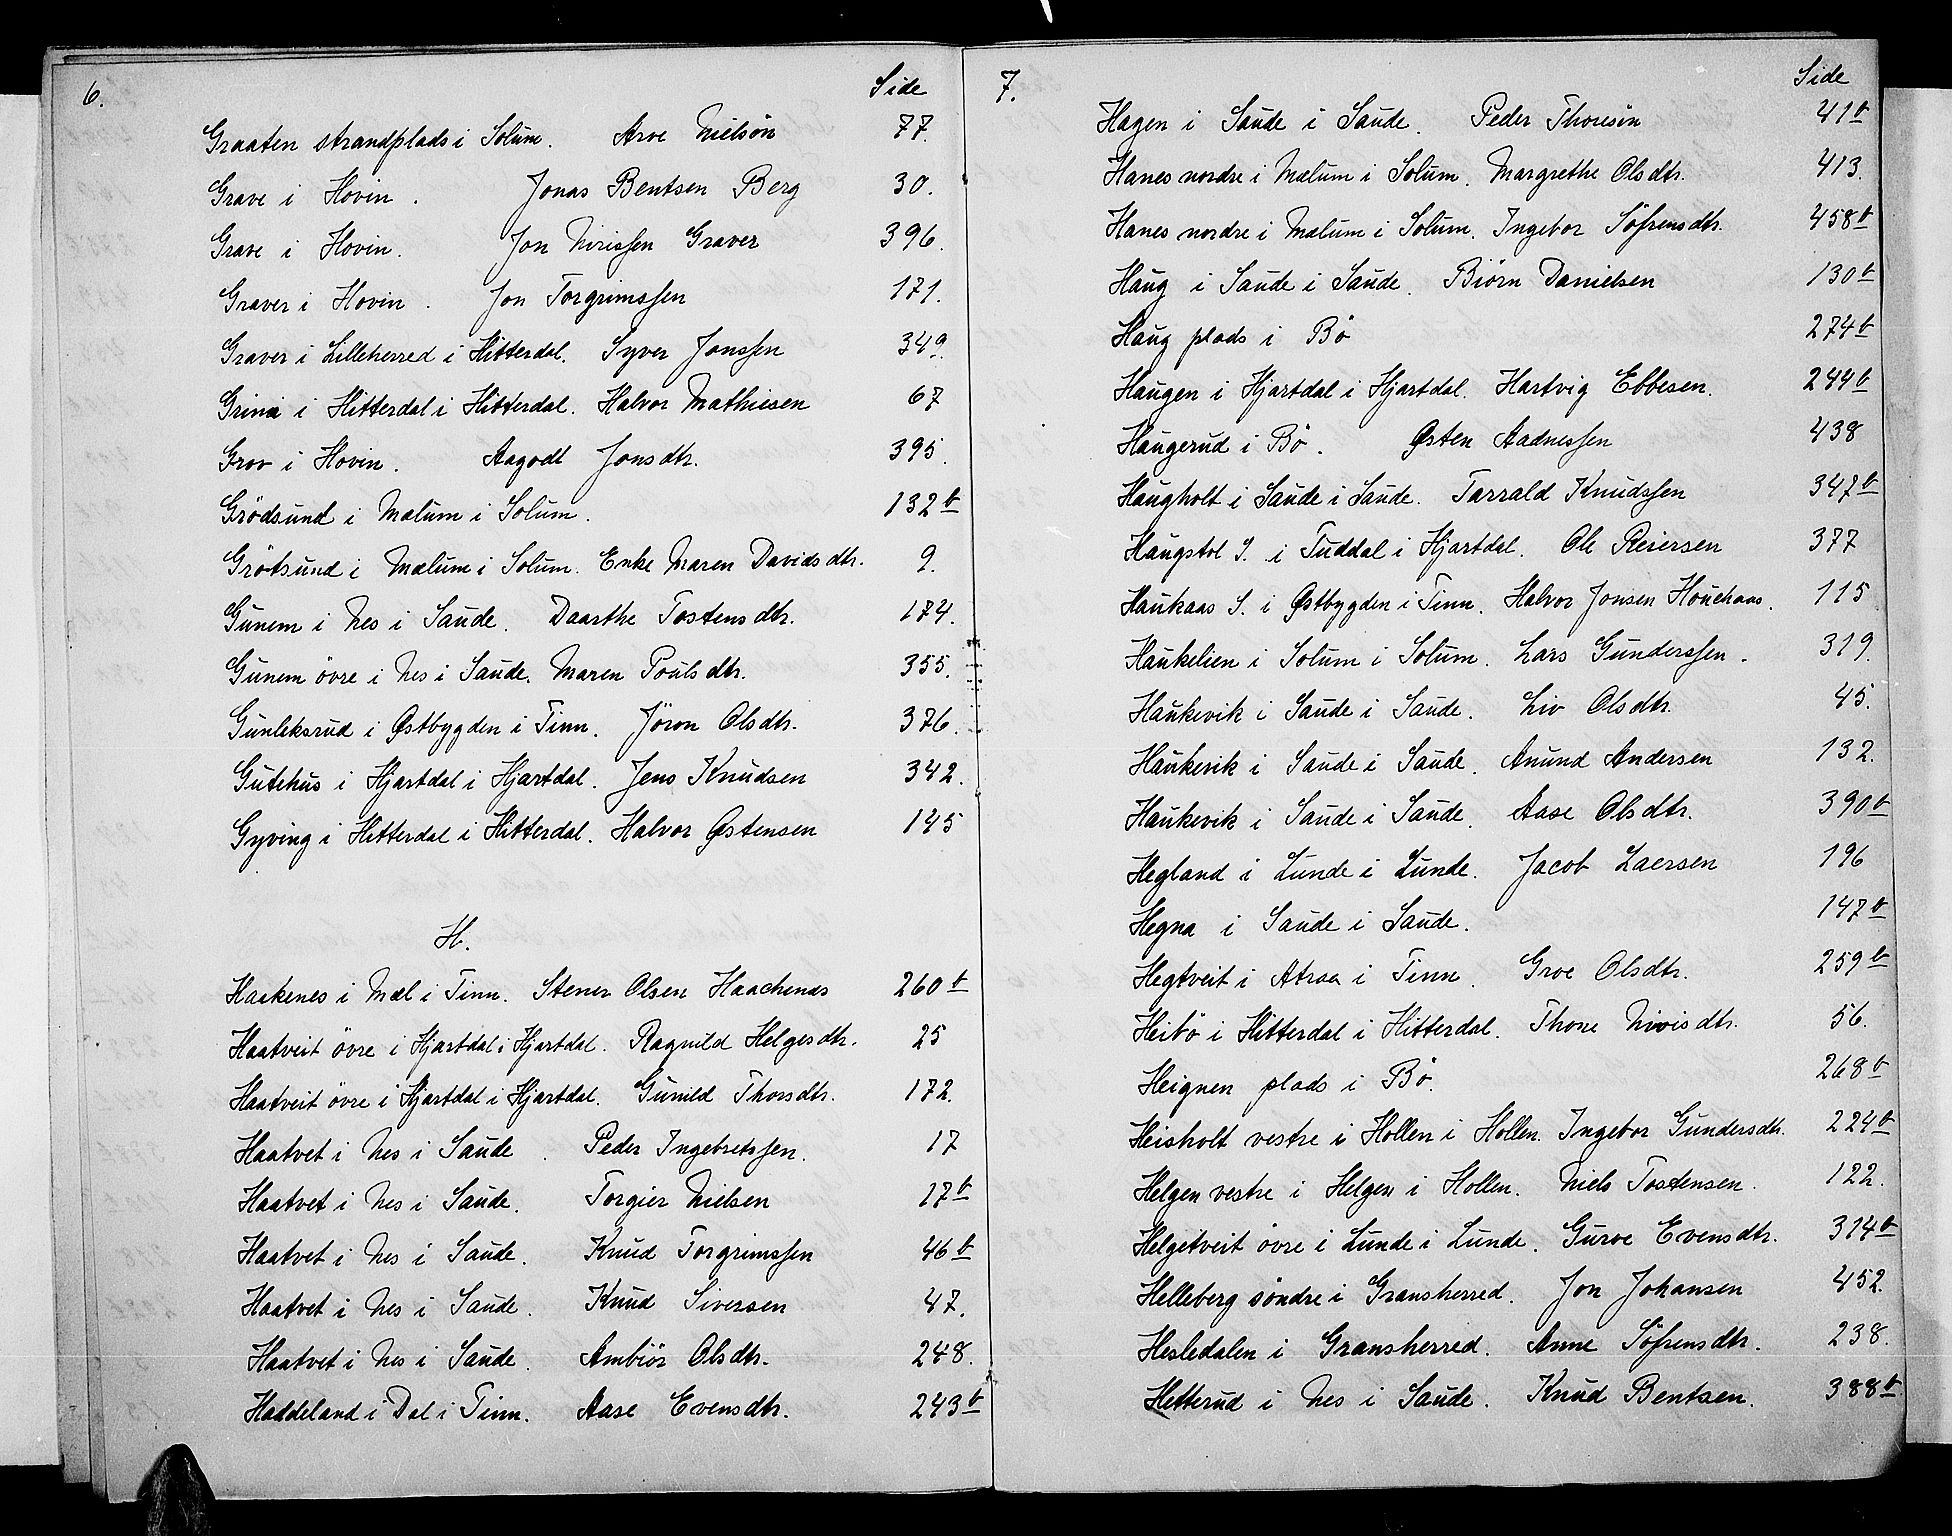 6. Side
Graaten strandplads i Solum. Arve Nielsön 77.
Grave i Hovin. Jonas Bentsen Berg 30.
Grave i Hovin. Jon Nirissen Graver 396.
Graver i Hovin. Jon Torgrimssen 171.
Graver i Lilleherred i Hitterdal. Syver Jonssen 349.
Grina i Hitterdal i Hitterdal. Halvor Mathiesen 67
Grov i Hovin. Aagodt Jonsdtr. 395.
Grödsund i Mælum i Solum. 132 b
Grötsund i Mælum i Solum. Enke Maren Davidsdtr. 9.
Gunem i Nes i Saude. Daarthe Tostensdtr. 174.
Gunem övre i Nes i Saude. Maren Poulsdtr. 355.
Gunleksrud i Østbygden i Tinn. Jöron Olsdtr. 376.
Gutehus i Hjartdal i Hjartdal. Jens Knudsen 342.
Gyving i Hitterdal i Hitterdal. Halvor Østensen 145
H.
Haakenes i Mæl i Tinn. Stener Olsen Haachenæs 260 b
Haatveit övre i Hjartdal i Hjartdal. Ragnild Helgesdtr. 25
Haatveit övre i Hjartdal i Hjartdal. Gunild Thorsdtr. 172.
Haatvet i Nes i Saude. Peder Ingebretssen. 17
Haatvet i Nes i Saude. Torgier Nielsen 17 b
Haatvet i Nes i Saude. Knud Torgrimssen 46 b
Haatvet i Nes i Saude. Knud Siversen 47.
Haatvet i Nes i Saude. Ambiör Olsdtr. 248.
Haddeland i Dal i Tinn. Aase Evensdtr. 243 b
7. Side
Hagen i Saude i Saude. Peder Thoresön 41 b
Hanes nordre i Mælum i Solum. Margrethe Olsdtr. 413.
Hanes nordre i Mælum i Solum. Ingebor Söfrensdtr. 458 b
Haug i Saude i Saude. Biörn Danielsen 130 b
Haug plads i Bö 274 b
Haugen i Hjartdal i Hjartdal. Hartvig Ebbesen. 244 b
Haugerud i Bö. Østen Aadnessen 438
Haugholt i Saude i Saude. Tarrald Knudssen 347 b
Haugstol S. i Tuddal i Hjartdal. Ole Reiersen 377
Haukaas S. i Østbygden i Tinn. Halvor Jonsen Houchaas. 115
Haukelien i Solum i Solum. Lars Gunderssen. 319.
Haukevik i Saude i Saude. Liv Olsdtr. 45.
Haukevik i Saude i Saude. Anund Andersen 132.
Haukevik i Saude i Saude. Aase Olsdtr. 390 b
Hegland i Lunde i Lunde. Jacob Laersen 196
Hegna i Saude i Saude. 147 b
Hegtveit i Atraa i Tinn. Groe Olsdtr. 259 b
Heibö i Hitterdal i Hitterdal. Thone Nirisdtr. 56.
Heignen plads i Bö. 268 b
Heisholt vestre i Hollen i Hollen. Ingebor Gundersdtr. 224 b
Helgen vestre i Helgen i Hollen. Niels Tostensen. 122.
Helgetveit övre i Lunde i Lunde. Gurve Evensdtr. 314 b
Helleberg söndre i Gransherred. Jon Johansen 452.
Hesledalen i Gransherred. Anne Söfrensdtr. 238.
Hetterud i Nes i Saude. Knud Bentsen. 388 b